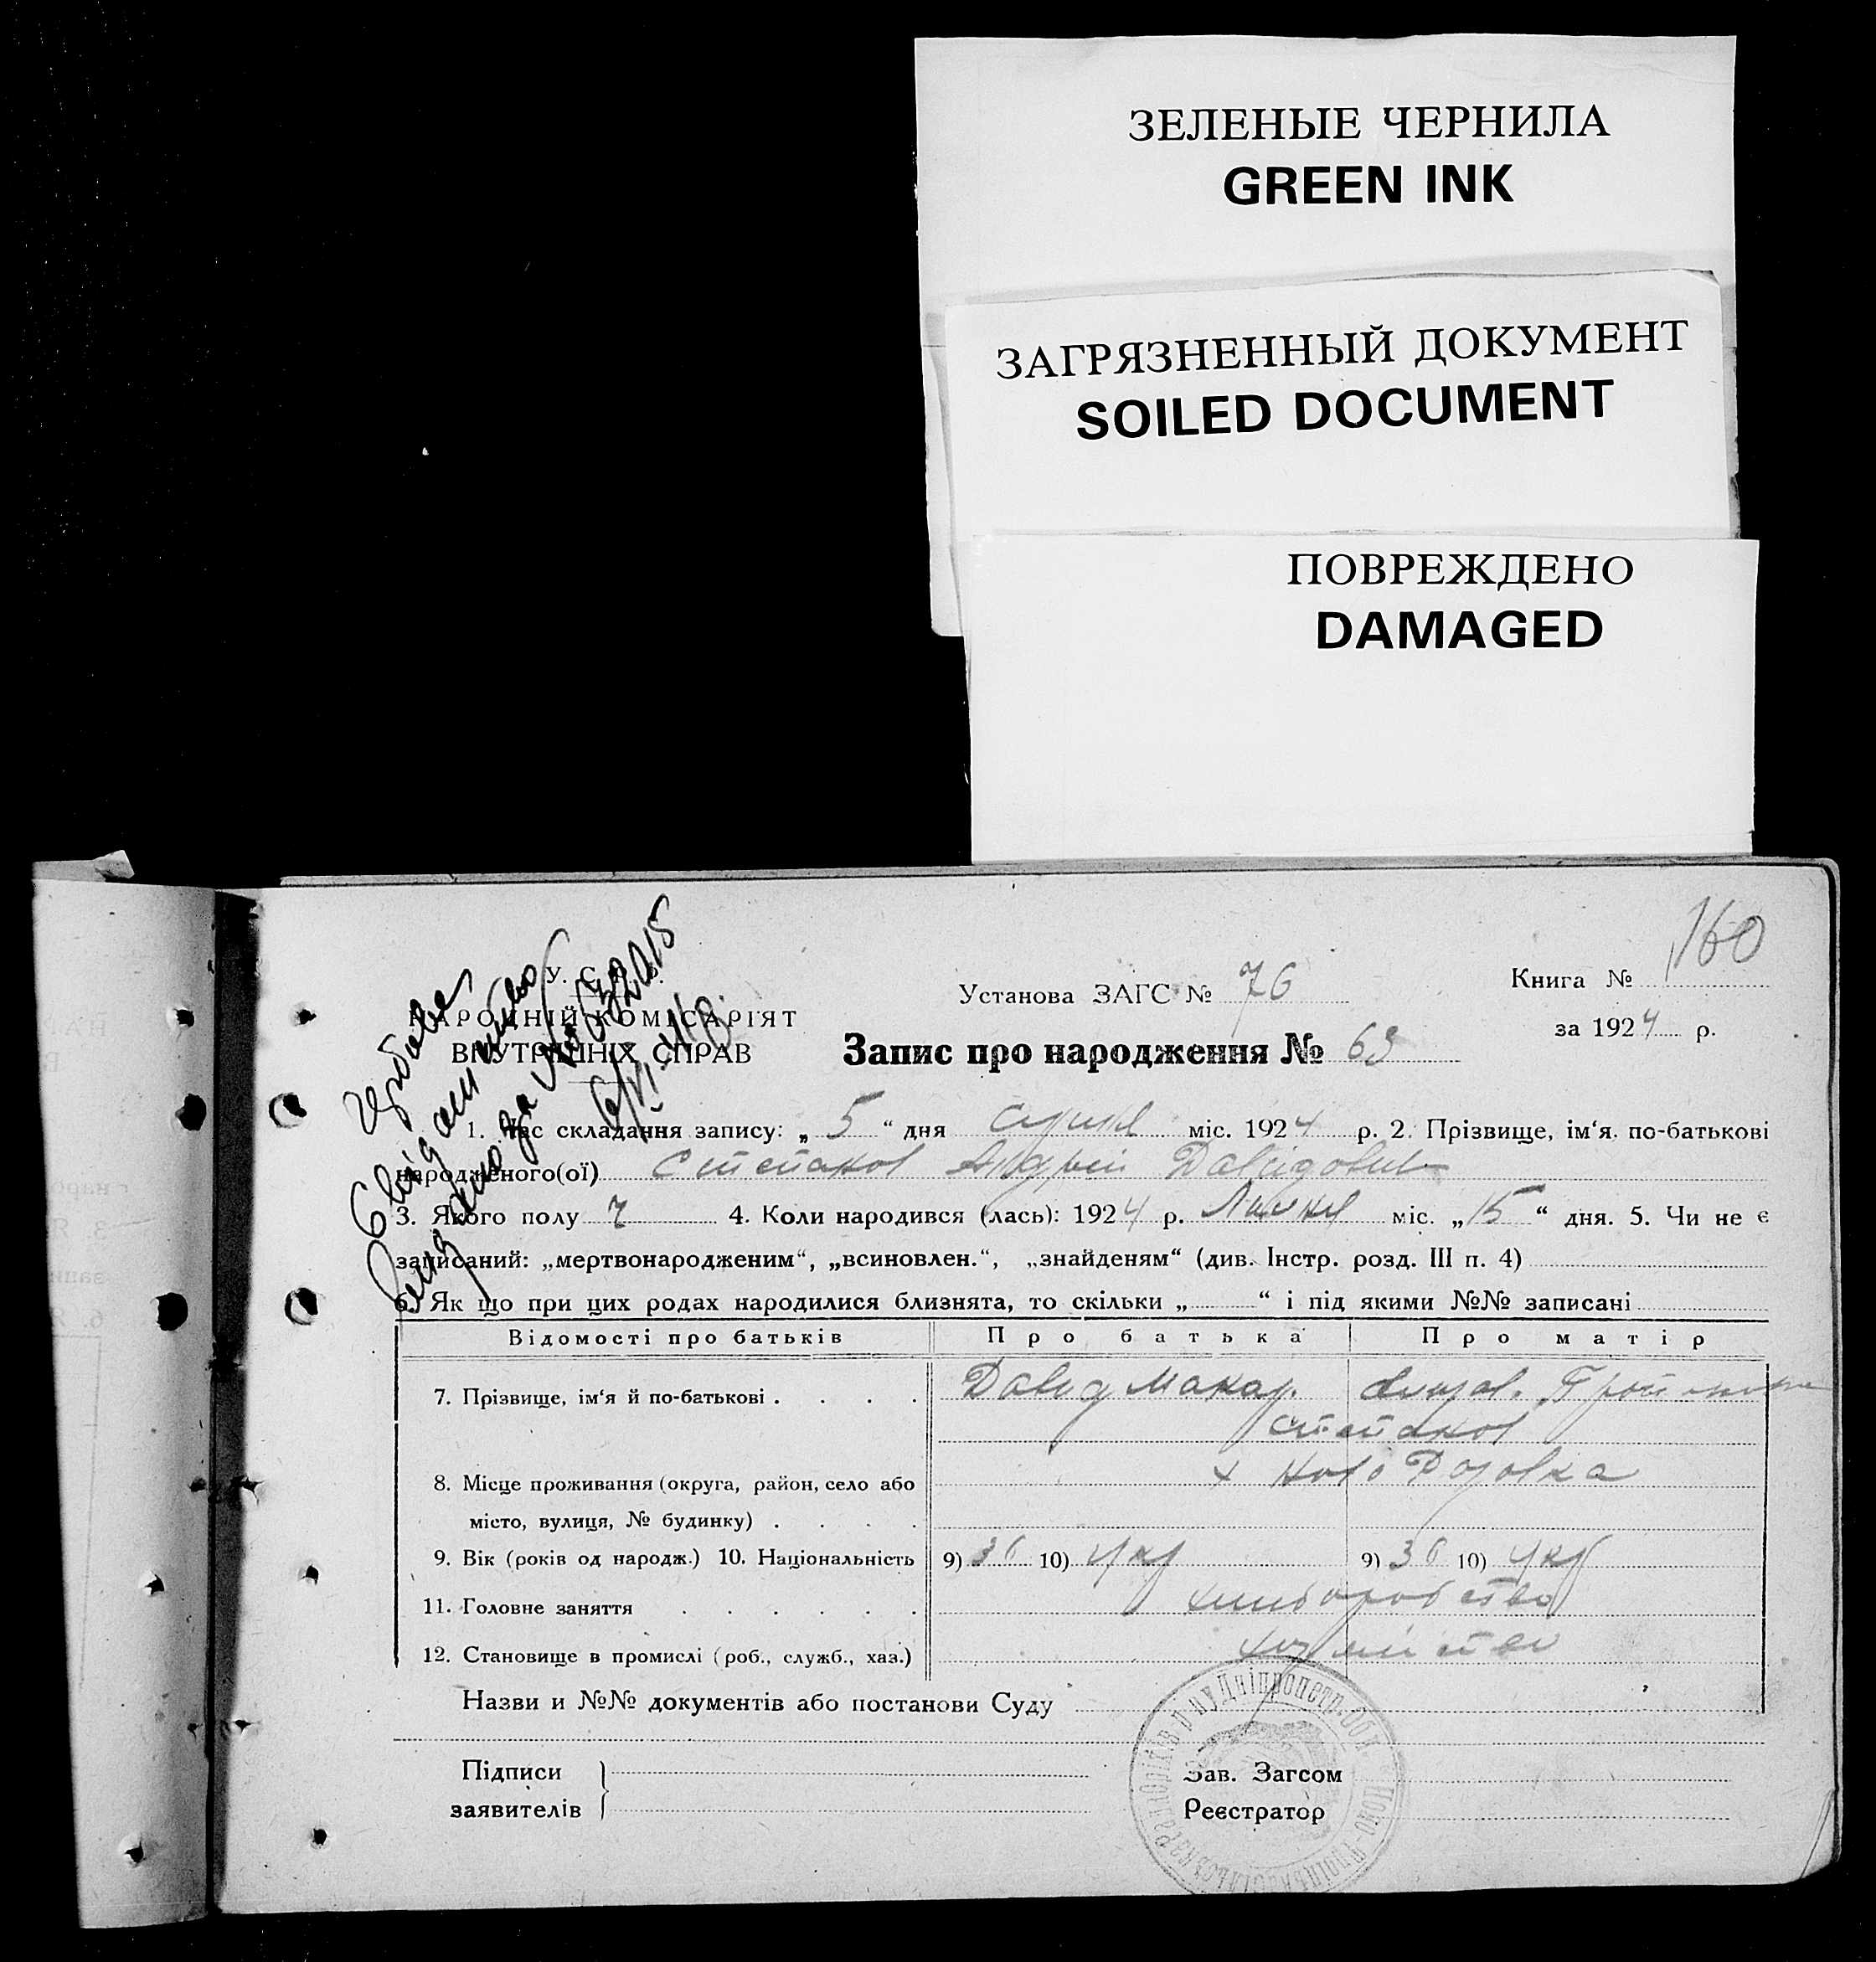 ЗЕЛЕНЫЕ ЧЕРНИЛА
GREEN INK
ЗАГРЯЗНЕННЫЙ ДОКУМЕНТ
SOILED DOCUMENT
ПОВРЕЖДЕНО
DAMAGED
160
У. С. Р. Р.
НАРОДНІЙ КОМІСАРІЯТ
ВНУТРІШНІХ СПРАВ
Установа ЗАГС № 76
Книга №
за 1924 р.
Запис про народження № 63
1. Час складання запису: „ 5 “ дня міс. 1924 р. 2. Прізвище, ім‘я, по-батькові
народженого(ої) Степанов Андрей Давидович
3. Якого полу ч 4. Коли народився (лась): 1924 р. Липня міс. „ 15 “ дня. 5. Чи не є
записаний: „мертвонародженим“, „всиновлен.“, „знайденям“ (див. Інстр. розд. III п. 4)
6. Як що при цих родах народилися близнята, то скільки „ “ і під якими №№ записані
Відомості про батьків Про батька Про матір
7. Прізвище, ім‘я й по-батькові . . . . Давид Макар.
Степанов
8. Місце проживання (округа, район, село або х
місто, вулиця, № будинку) . . . .
9. Вік (років од народж.) 10. Національність 9) 36 10) Укр 9) 36 10) Укр
11. Головне заняття . . . . . . хлиборобство
12. Становище в промислі (роб., служб., хаз.)
Назви и №№ документів або постанови Суду
Підписи
заявителів
Зав. Загсом
Реєстратор